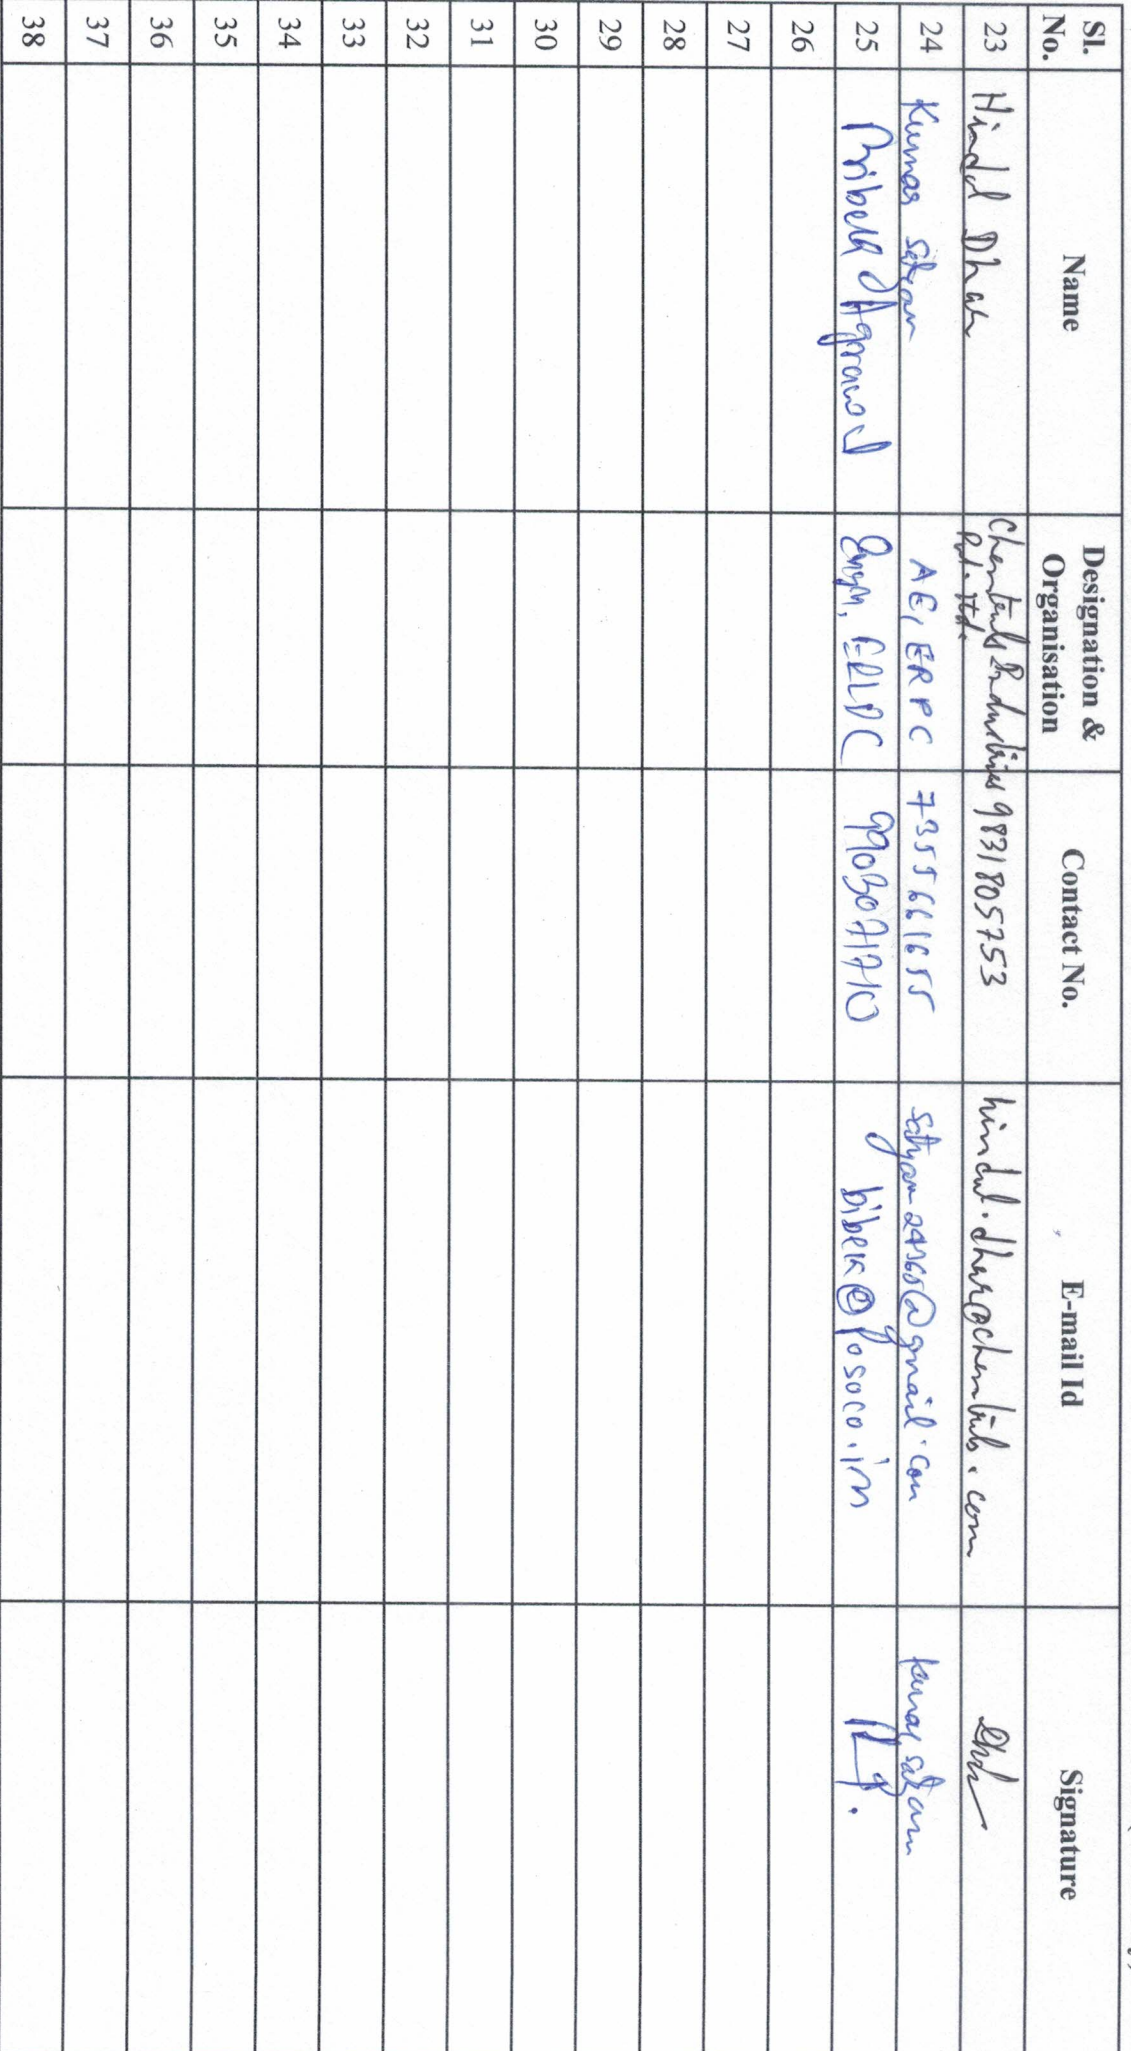 Sl. No. Name Designation & Organisation Contact No. E-mail Id Signature
23 Hindol Dhar Chemtrols Industries Pvt. Ltd. 9831805753 hindol.dhar@chemtrols.com Dhar
24 Kumar Satyam AE, ERPC 7355661655 satyam24360@gmail.com Kumar Satyam
25 Bibek Agrawal ERLDC 9903071710 bibek@posoco.in
26
27
28
29
30
31
32
33
34
35
36
37
38